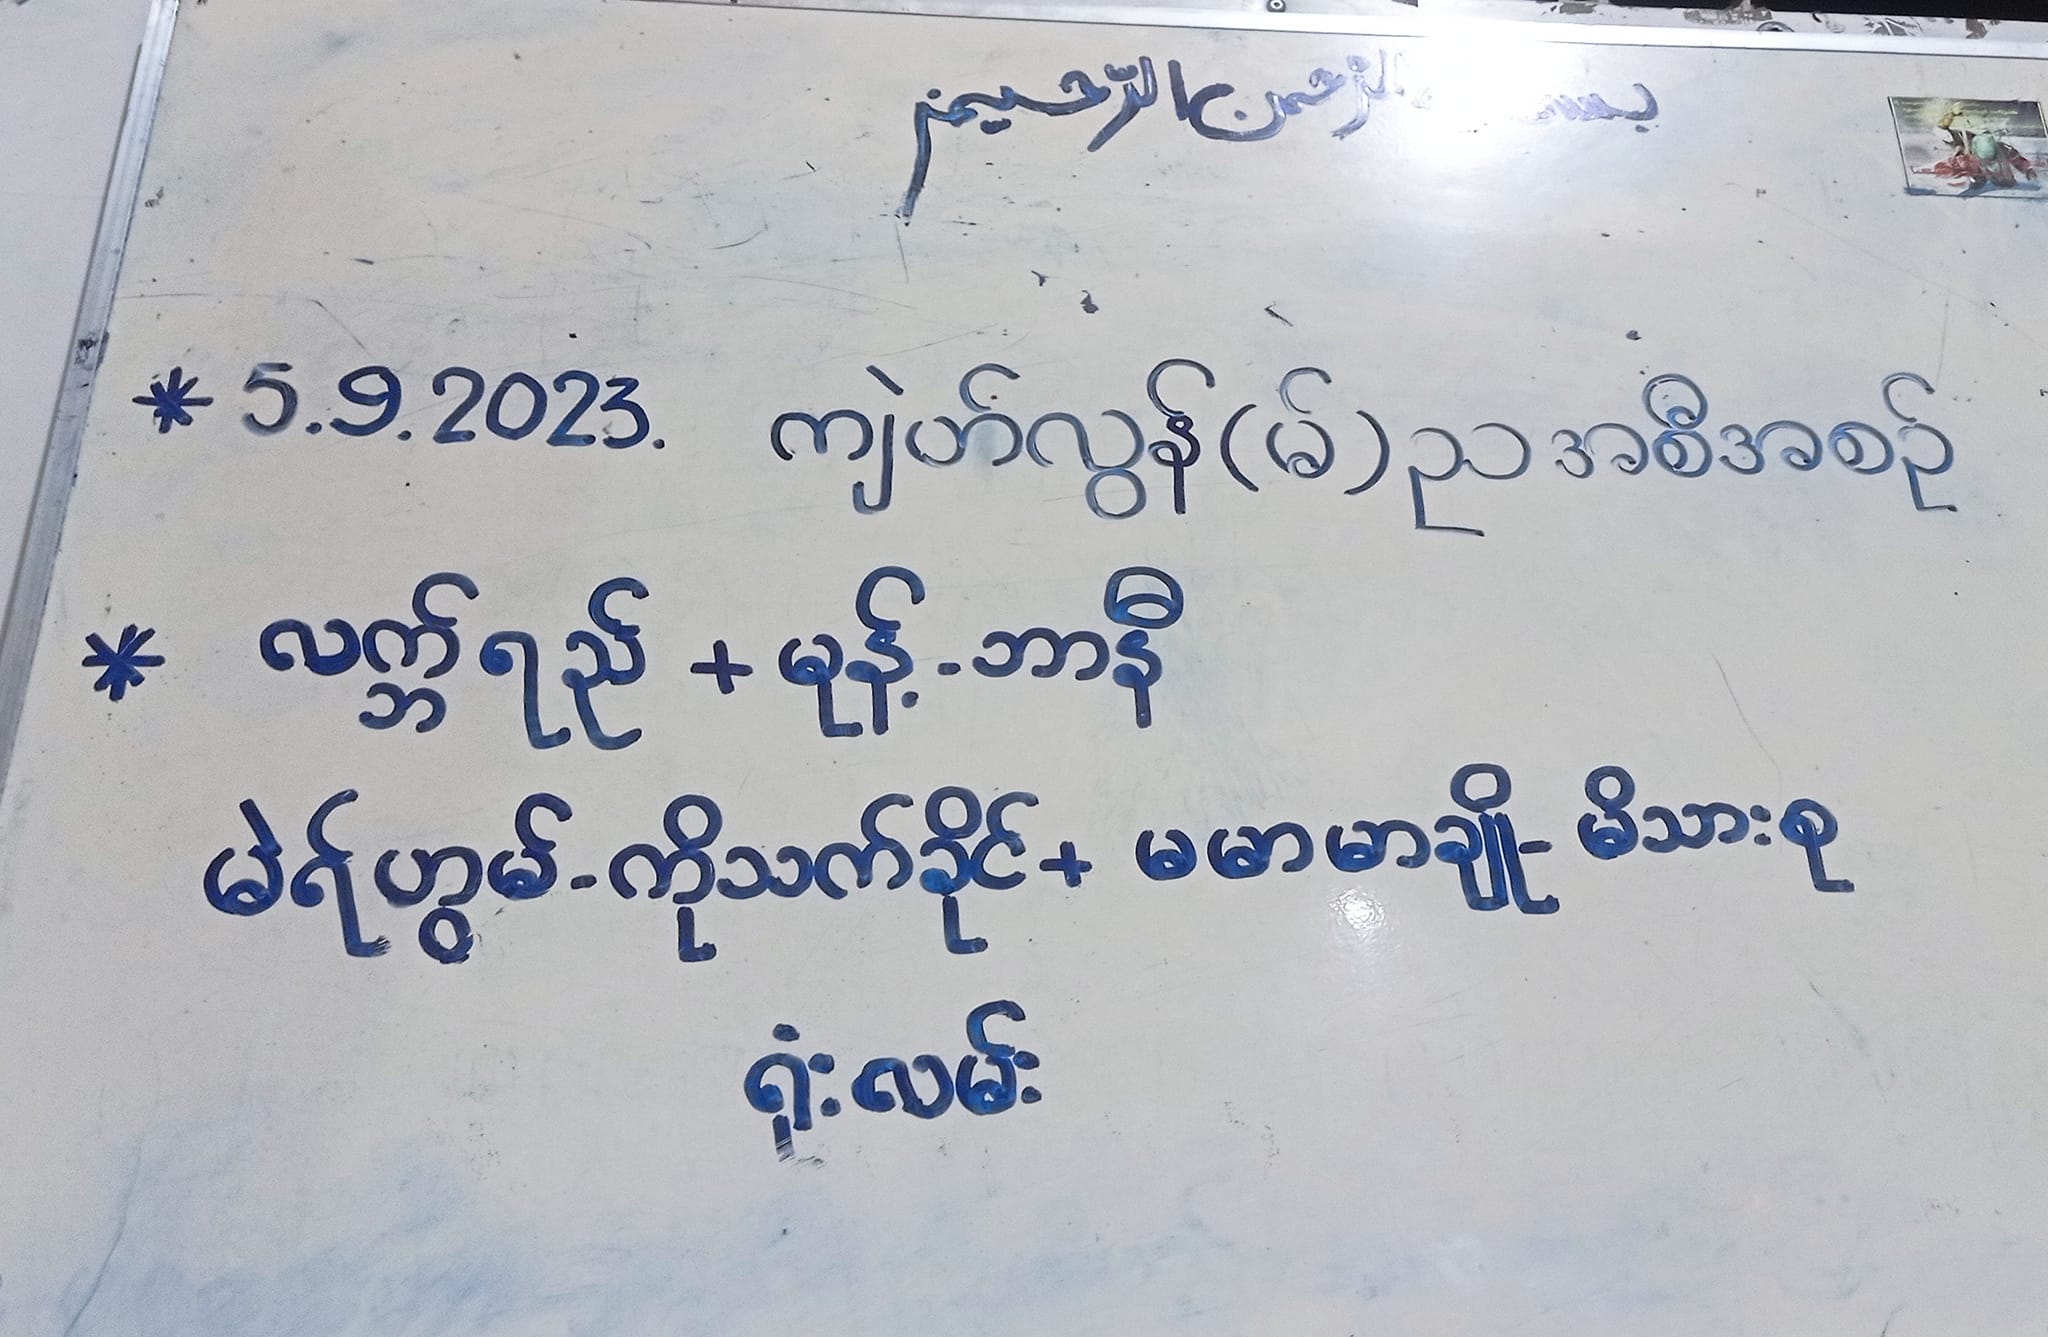 بسم الله الرحمن الرحيم
* 5.9.2023. ကျဲဟ်လွန်(မ်)ညအစီအစဉ်
* လက္ဘက်ရည် + မုန့်-ဘာနီ
မဲရ်ဟွမ်-ကိုသက်ခိုင် + မမာမာချို- မိသားစု
ရုံးလမ်း